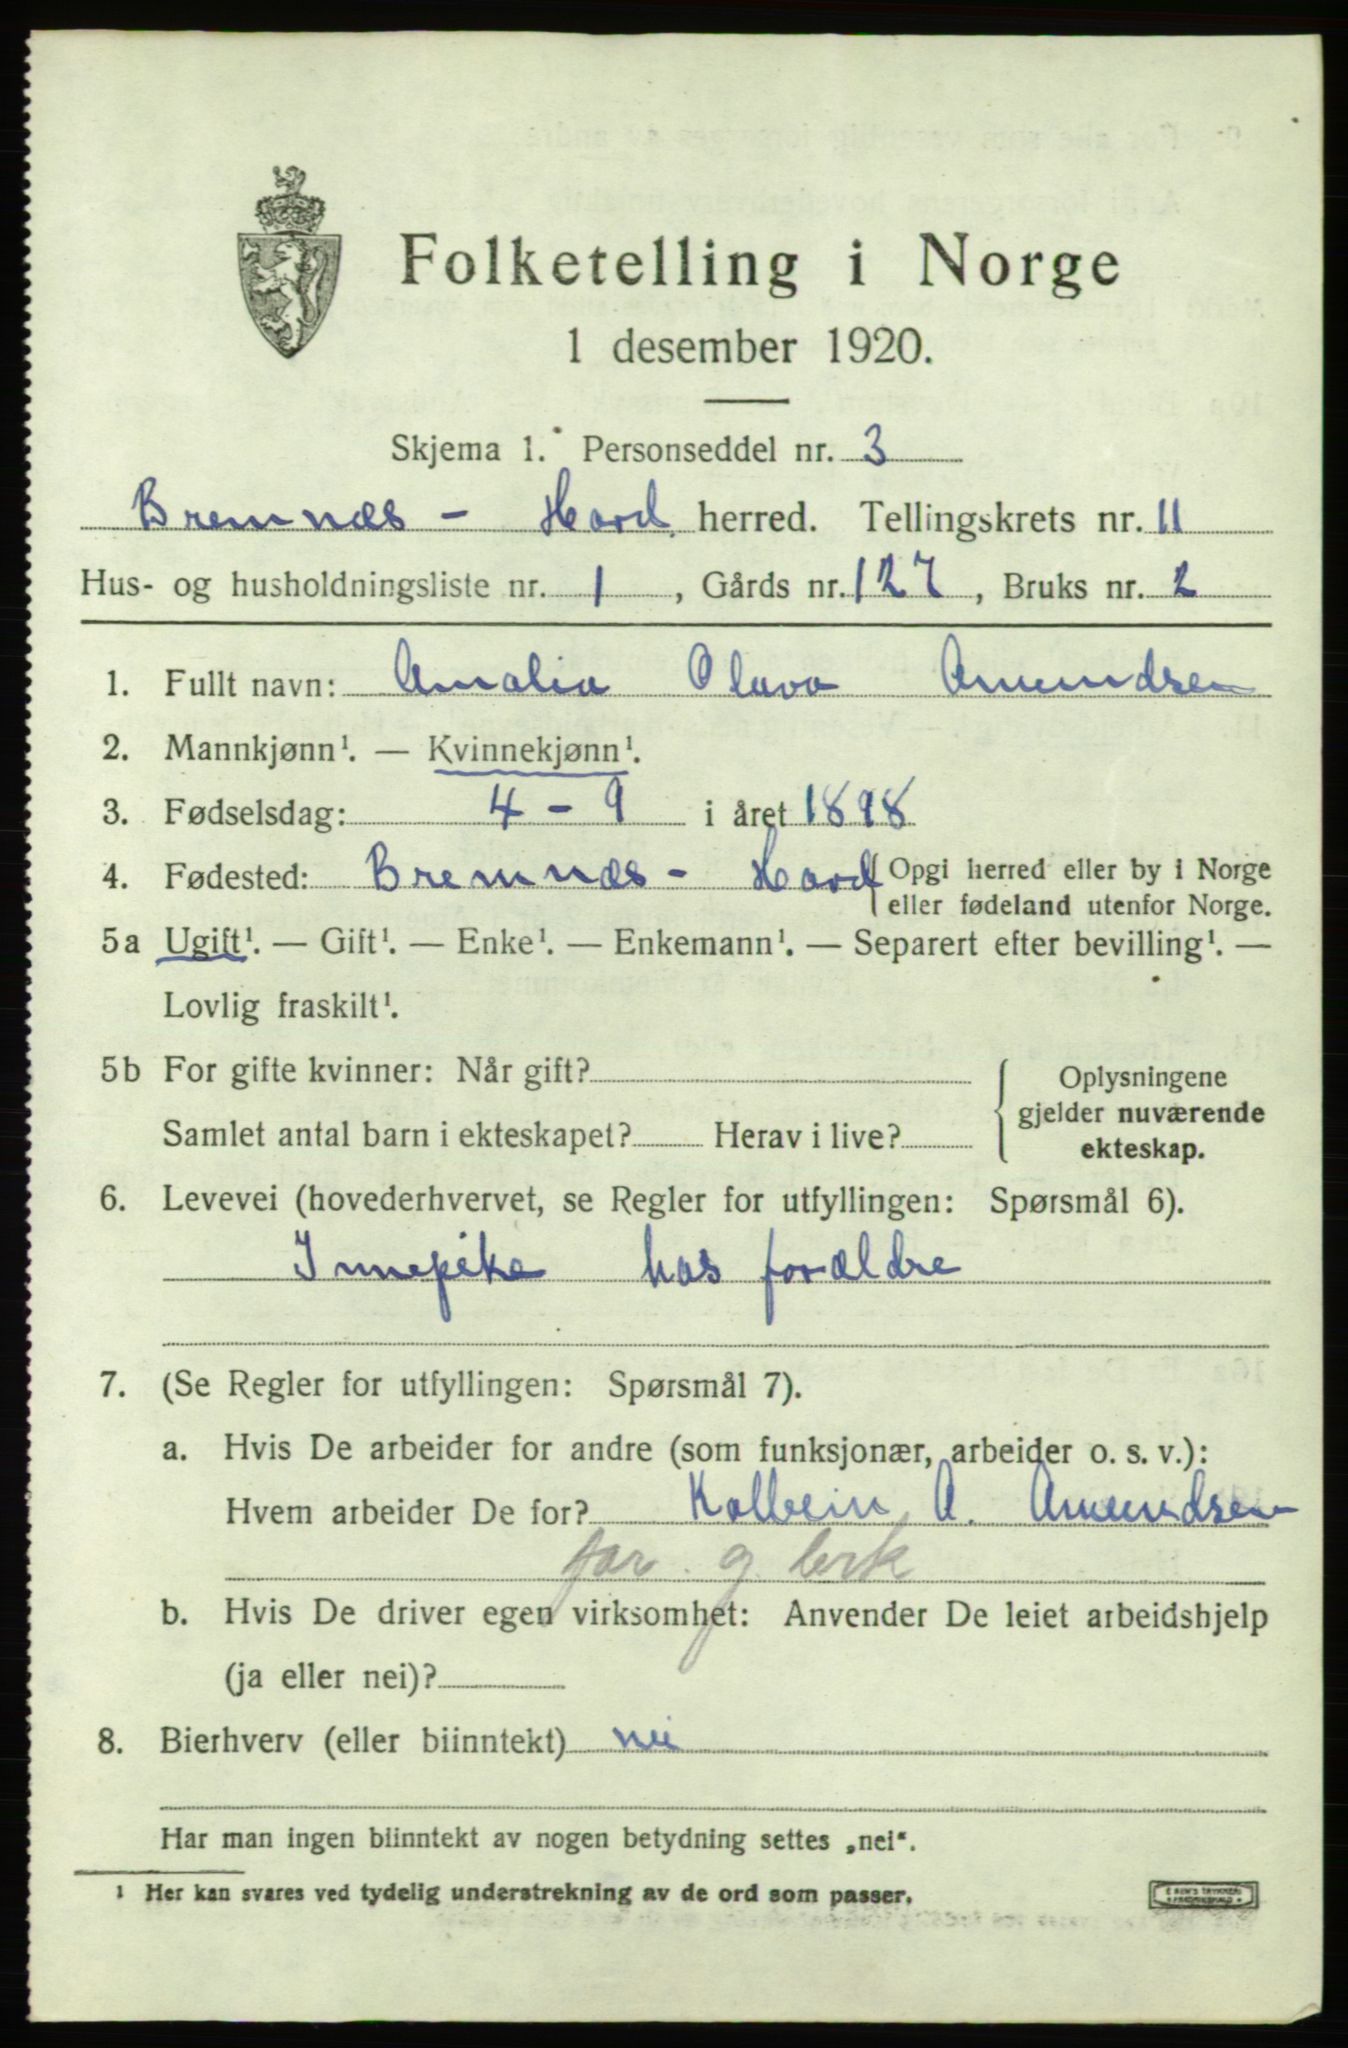 Folketelling i Norge
1 desember 1920.
Skjema 1. Personseddel nr. 3
Bremnæs - Hord. herred. Tellingskrets nr. 11
Hus- og husholdningsliste nr. 1, Gårds nr. 127, Bruks nr. 2
1. Fullt navn: Amalia Olava Amundsen
2. Mannkjønn¹. — Kvinnekjønn¹.
3. Fødselsdag: 4 - 9 i året 1898
4. Fødested: Bremnæs - Hord { Opgi herred eller by i Norge
eller fødeland utenfor Norge.
5a Ugift¹. — Gift¹. — Enke¹. — Enkemann¹. — Separert efter bevilling¹. —
Lovlig fraskilt¹.
5b For gifte kvinner: Når gift?
Samlet antal barn i ekteskapet? Herav i live?
{ Oplysningene
gjelder nuværende
ekteskap.
6. Levevei (hovederhvervet, se Regler for utfyllingen: Spørsmål 6).
Innepike hos forældre
7. (Se Regler for utfyllingen: Spørsmål 7).
a. Hvis De arbeider for andre (som funksjonær, arbeider o. s. v.):
Hvem arbeider De for? Kolbein A. Amundsen
far g.
b. Hvis De driver egen virksomhet: Anvender De leiet arbeidshjelp
(ja eller nei)?
8. Bierhverv (eller biinntekt) nei
Har man ingen biinntekt av nogen betydning settes „nei“.
¹ Her kan svares ved tydelig understrekning av de ord som passer.